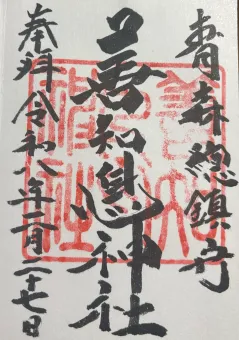 青森總鎮守
善知鳥神社
奉拝 令和六年二月二十七日